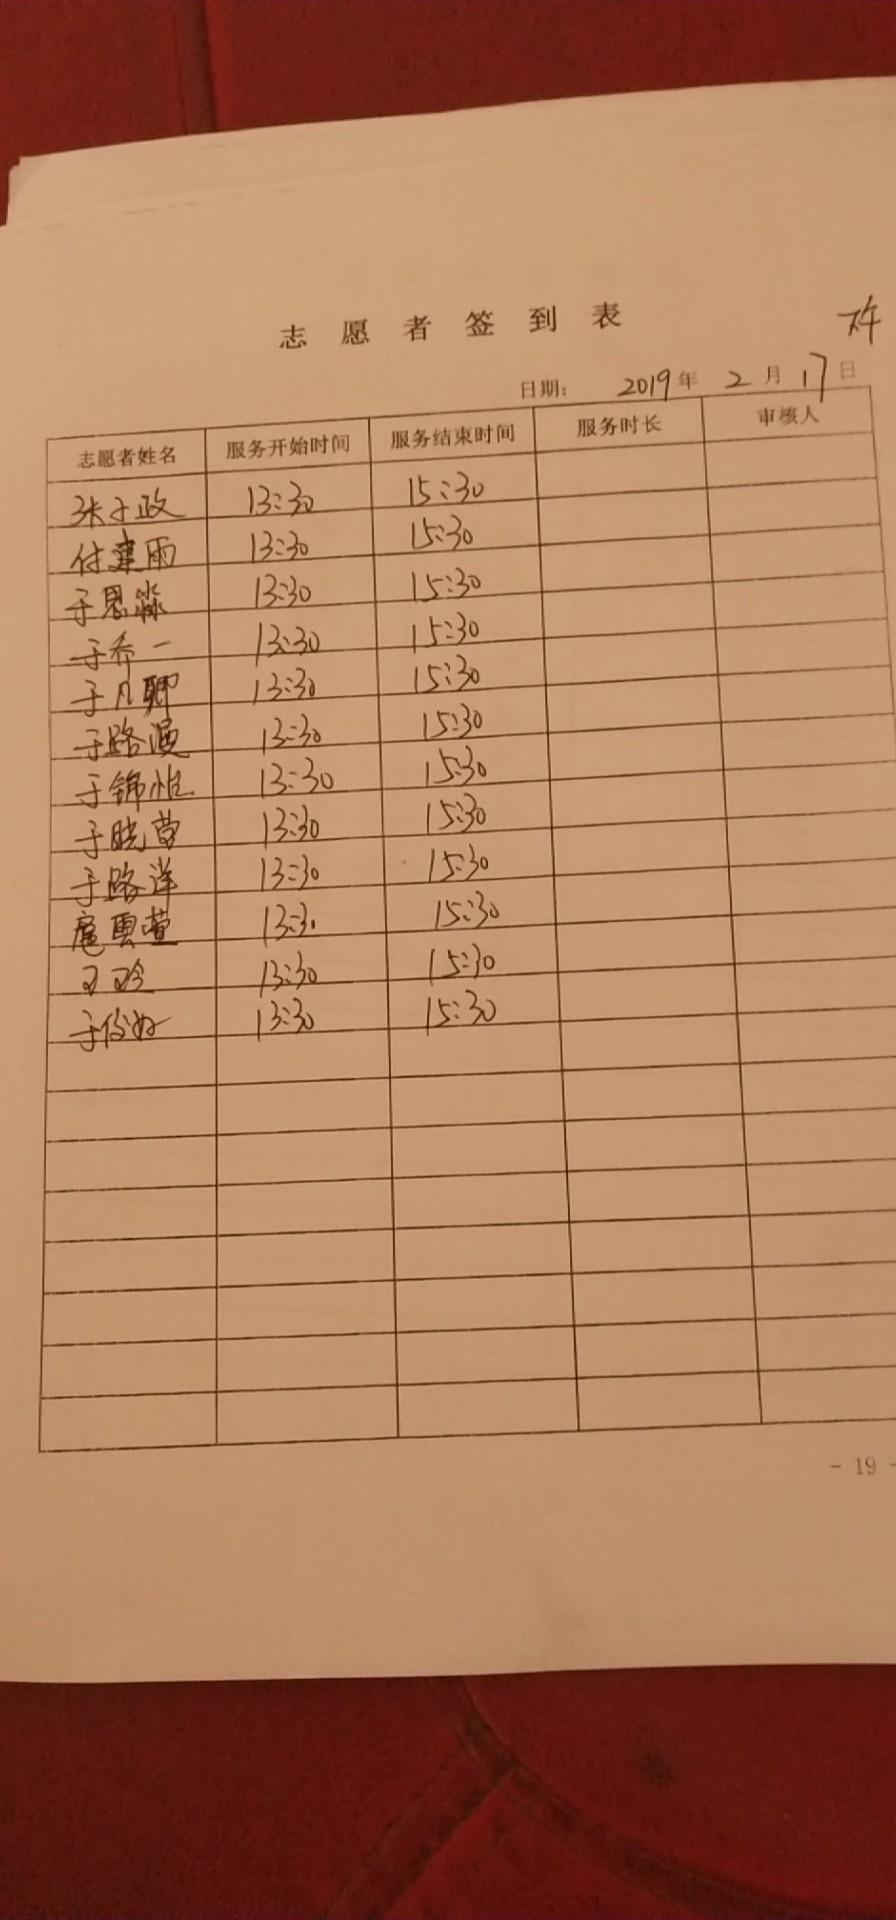 志愿者签到表
日期： 2019年 2月 17日
志愿者姓名 服务开始时间 服务结束时间 服务时长 审核人
张子政 13:30 15:30
付建雨 13:30 15:30
于思淼 13:30 15:30
于乔一 13:30 15:30
于凡卿 13:30 15:30
于路漫 13:30 15:30
于锦 13:30 15:30
于晓萱 13:30 15:30
于路洋 13:30 15:30
扈雲萱 13:30 15:30
13:30 15:30
于 13:30 15:30
- 19 -